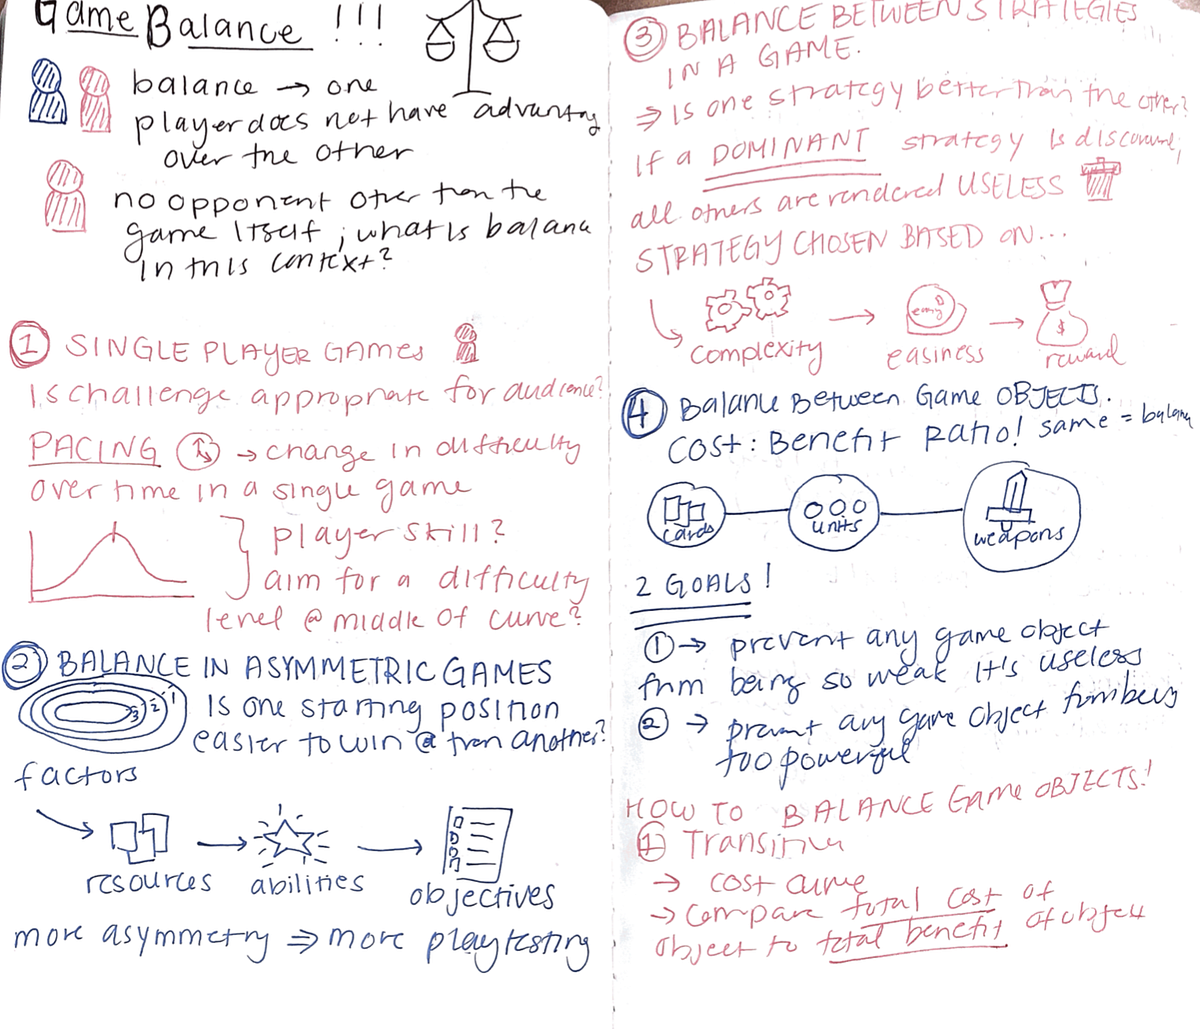 Game Balance !!!
balance → one
player does not have advantag
over the other
no opponent other than the
game itself ; what is balanc
in this context?
① SINGLE PLAYER GAMES
Is challenge appropriate for audience?
PACING → change in difficulty
over time in a single game
player skill?
aim for a difficulty
level @ middle of curve?
② BALANCE IN ASYMMETRIC GAMES
1
2
3
Is one starting position
easier to win @ than another?
factors
→ → →
resources abilities objectives
more asymmetry ⇒ more playtesting
③ BALANCE BETWEEN STRATEGIES
IN A GAME.
⇒ Is one strategy better than the other?
If a DOMINANT strategy is discovered,
all others are rendered USELESS
STRATEGY CHOSEN BASED ON...
easy
$
complexity → easiness → reward
④ Balance Between Game OBJECTS.
COST : Benefit Ratio! same = balanc
cards units weapons
2 GOALS!
① → prevent any game object
from being so weak it's useless
② → prevent any game object from being
too powerful
HOW TO BALANCE Game OBJECTS!
① Transitive
→ cost curve
→ Compare total cost of
object to total benefit of object